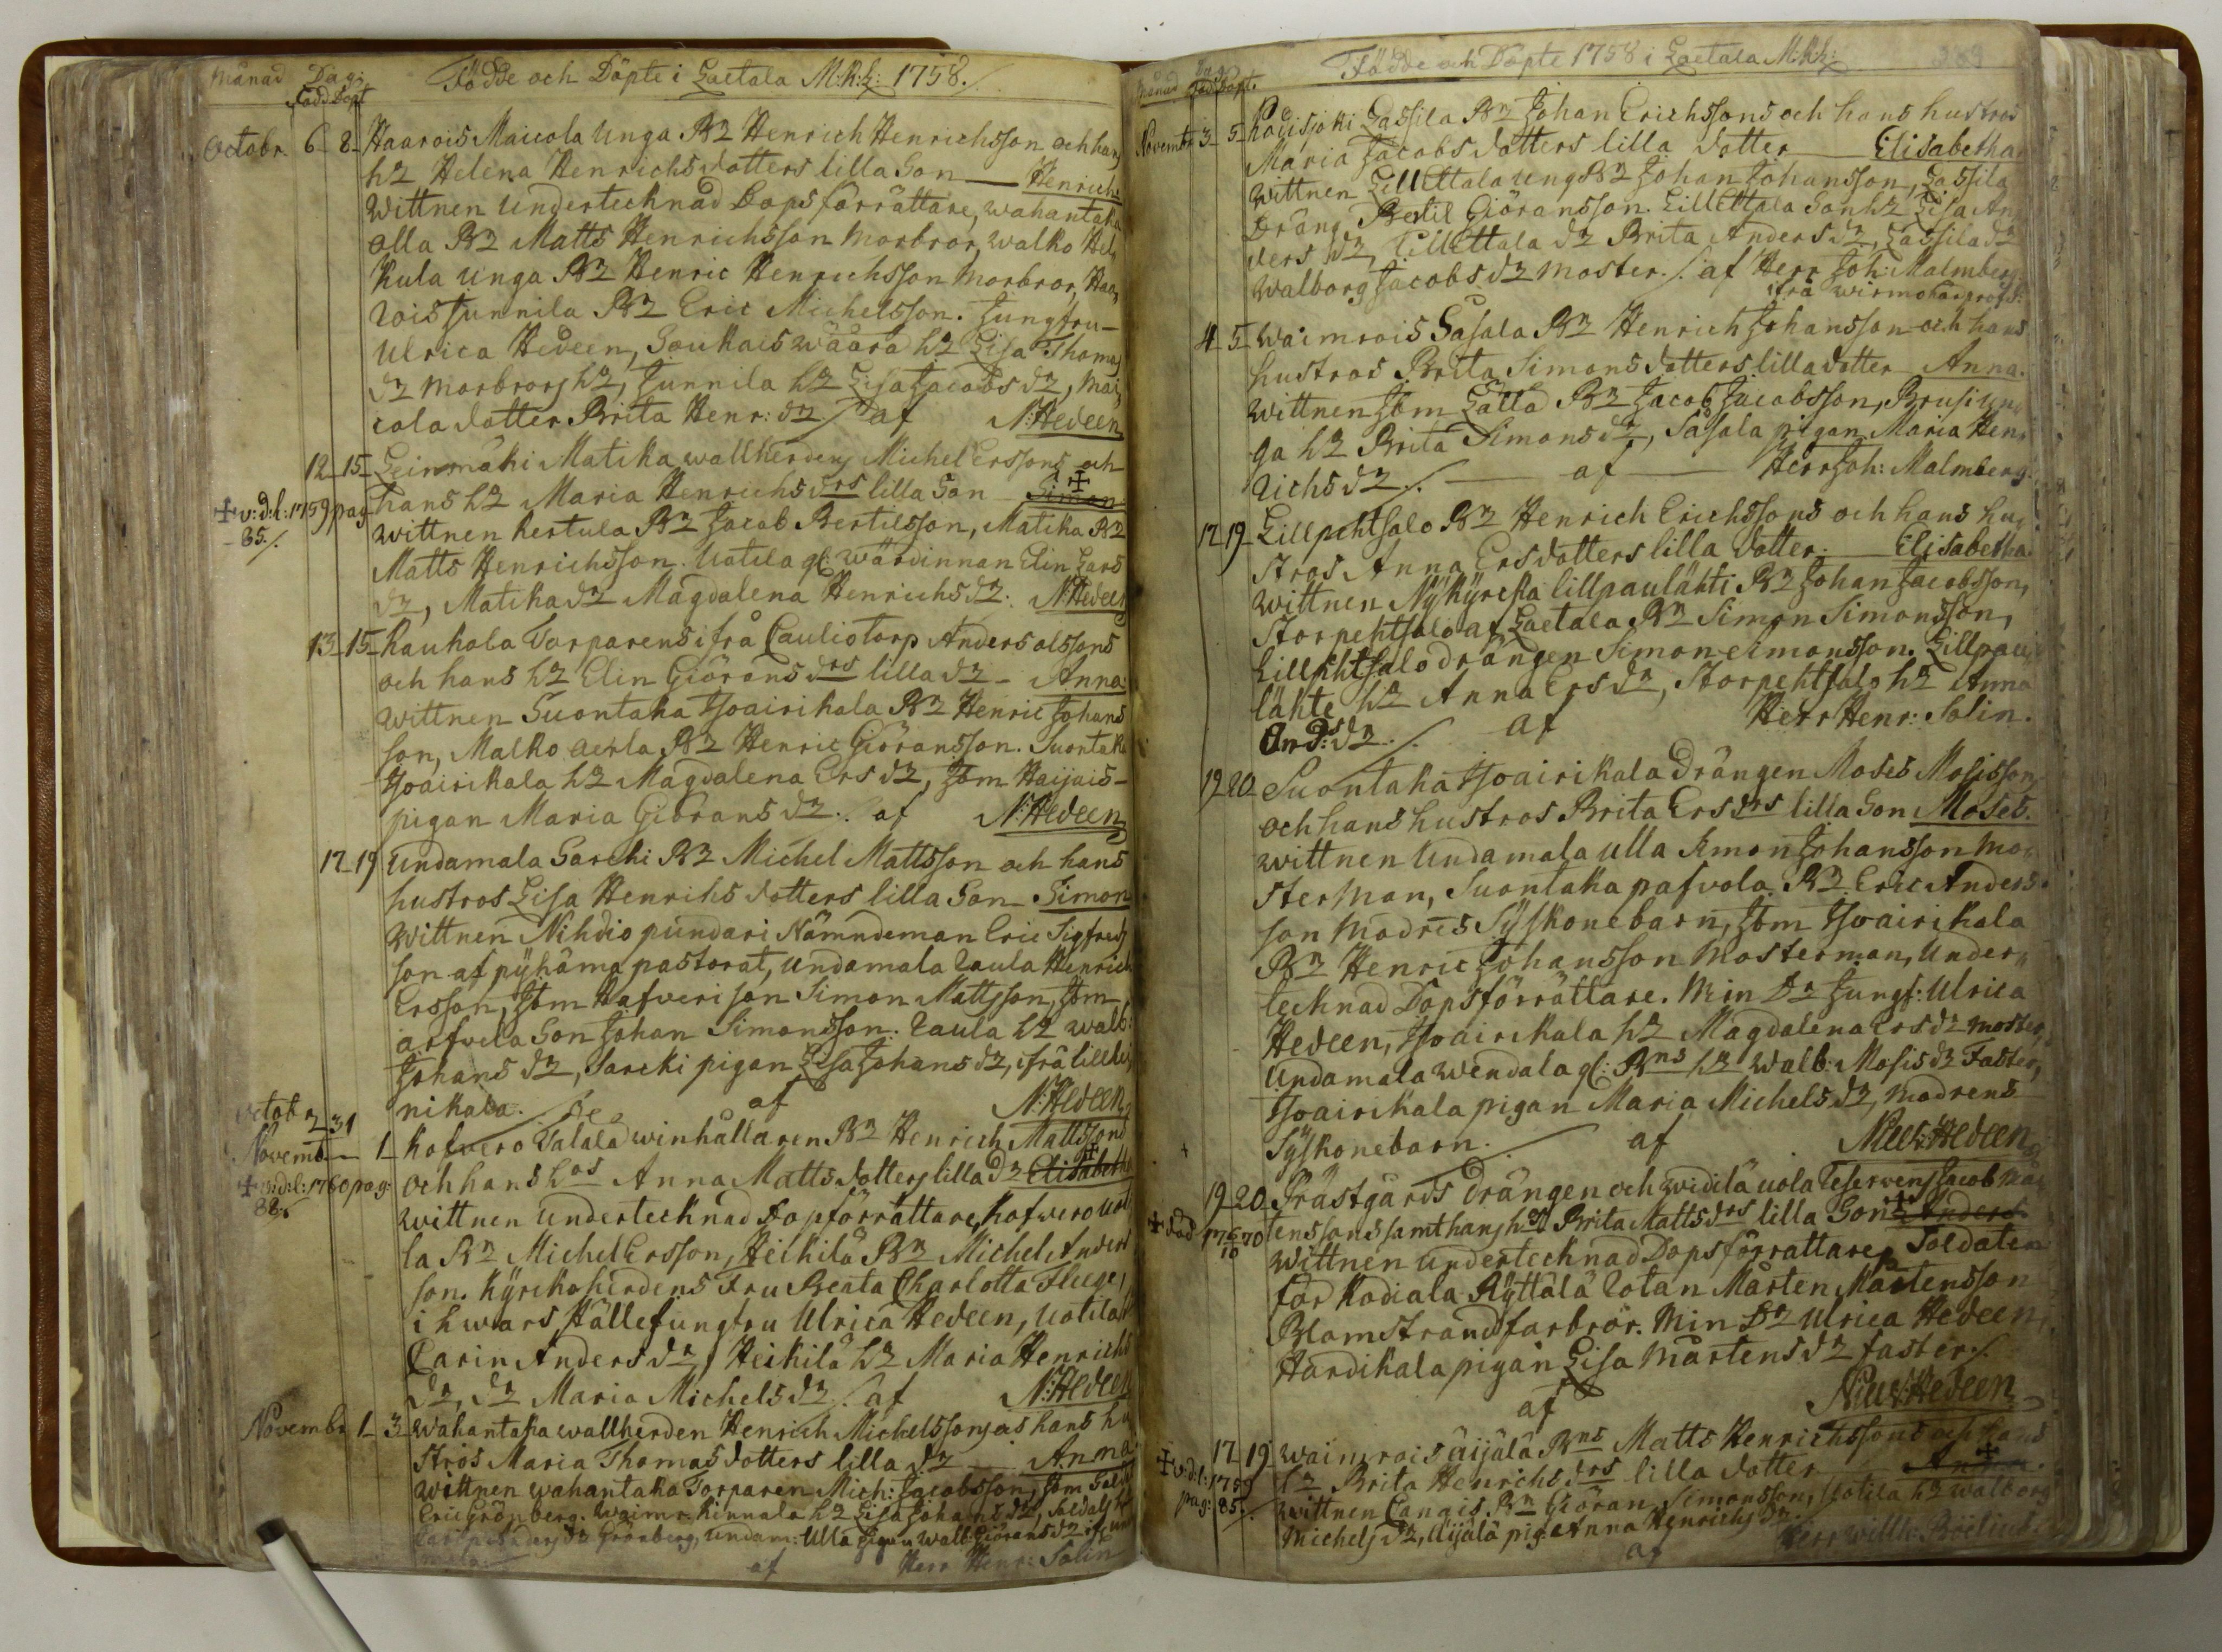 Månad Dag: Födde och Döpte i Laetala M:K:L: 1758./.
född Döpt
Octobr. 6 8 Haarois Maicola Unga Bn Henrich Henrichsson och hans
hu Helena Henrichsdotters lilla Son — Henrich
Wittnen Undertecknad Dopsförrättare, wahantaka
olla Bn Matts Henrichsson Morbror, walko Hei
kula unga Bn Henric Henrichsson Morbror, Haa
rois Junnila Bn Eric Michelsson. Jungfru
Ulrica Hedeen, Soukais wäära hu Lisa Thomas
dr Morbrors hu, Junnila hu Lisa Jacobs dr, Mai
cola dotter Brita Henr: dr ./. af N: Hedeen
12 15 Leinmäki Matika wallherdens Michel Erssons och
hans hu Maria Henrichs drs lilla Son Simon
✝ v:d:l: 1759 pag
85./.
wittnen kertula Bn Jacob Bertilsson, Matika Bn
Matts Henrichsson. Uotila gl: wärdinnan Elin Lars
dr, Matika dr Magdalena Henrichs dr. N: Hedeen
13 15 Kaukola Torparens ifrå Cauliotorp Anders olssons
och hans hu Elin Giörans drs lilla dr — Anna
wittnen Suontaka Isoairikala Bn Henric Johans
son, Malko Bn Henric Giöransson. Suontaka
Isoairikala hu Magdalena Ers dr, Ibm Haijais
pigan Maria Giörans dr. af N: Hedeen
17 19 Undamala Sarcki Bn Michel Mattsson och hans
hustros Lisa Henrichs dotters lilla Son Simon
Wittnen Nihdio pundari Nämndeman Eric Sigfreds
son af pyhäma pastorat, Undamala Caula Henrich
Ersson, Ibm Hafveri son Simon Mattsson, Ibm
arfvela Son Johan Simonsson. Caula hu walb:
Johans dr, Sarcki pigan Lisa Johans dr, ifrå lillhei
nikala. af N: Hedeen
Octobr 31
Novemb. 1 Kofvero Talala winhållaren Bn Henrich Mattssons
och hans hos Anna Matts dotters lilla dr Elisabetha
✝ v:d:l: 1760 pag:
88.
wittnen undertecknad Dopförrättare, Kofvero uoti
la Bn Michel Ersson, Heikilä Bn Michel Anders
son. Kyrckoherdens Fru Beata Charlotta Flege,
i hwars ställe jungfru Ulrica Hedeen, Uotila hu
Carin Anders dr, Heikilä hu Maria Henrichs
dr, dr Maria Michels dr ./. af N: Hedeen
Novembr 1 3 Wahantaka wallherden Henrich Michelssons och hans hu
stros Maria Thomas dotters lilla dr — Anna
Wittnen wahantaka Torparen Mich: Jacobsson, Ibm Soldat
Eric Grönberg. Waimr. kinnala hu Lisa Johans dr, Soldats hu
Grönberg, Undam: Ulla pigan Walb: Giörans dr
mala af Herr Henr: Solin
Födde och Döpte 1758 i Laetala M:K:L:
Månad Dag: född Döpt.
Novembr 3 5 Lassila Bn Johan Erichssons och hans hustros
Maria Jacobs dotters lilla dotter — Elisabetha
Wittnen Lill Ettala ung Bn Johan Johansson, Lassila
Dräng Bertil Giöransson. Lill Ettala Son hu Lisa An
ders dr, Lill Ettala dr Brita Anders dr, Lassila dr
Walborg Jacobs dr Moster ./. af Herr Joh: Malmberg
ifrå
4 5 Waimrois Sasala Bn Henrich Johansson och hans
hustros Brita Simons dotters lilla dotter Anna.
Wittnen Ibm Latla Bn Jacob Jacobsson, Brusi un
ga hu Brita Simons dr, Sasala pigan Maria Hen
richs dr ./. — af — Herr Joh: Malmberg
17 19 Lillpehtsalo Bn Henrich Erichssons och hans hu
stros Anna Ersdotters lilla dotter — Elisabetha
Wittnen Nykyrcka lillpaulähti Bn Johan Jacobsson,
Storpehtsalo af Laetala Bn Simon Simonsson,
Lillpehtsalo drängen Simon Simonsson. Lillpau
lähte hu Anna Ers dr, Storpehtsalo hu Anna
And:s dr ./. af Herr Henr: Solin.
19 20 Suontaka Isoairikala Drängen Moses Mosisson
och hans hustros Brita Ers drs lilla Son Moses.
wittnen Undamala Ulla Simon Johansson Mo
sterman, Suontaka pafvola Bn Eric Anders
son Modrens Syskonebarn, Ibm Isoairikala
Bn Henric Johansson Mosterman, Under
tecknad Dopsförrättare. Min Dr Jungf: Ulrica
Hedeen, Isoairikala hu Magdalena Ers dr moster,
Undamala wendala gl: Bns hu Walb: Mosis dr Faster,
Isoairikala pigan Maria Michels dr, modrens
Syskonebarn. af Hedeen
19 20 Prästgårds Drängen och widilä uola Jacob Mår
tenssons samt hans hos Brita Matts drs lilla Son Anders
✝ död
Wittnen undertecknad Dopsförrattare, Soldaten
för Kodiala Ryttälä Rotan Mårten Mårtensson
Blomstrand farbror. Min Dr Ulrica Hedeen,
Hardikala pigan Lisa Mårtens dr faster ./.
af Hedeen
17 19 Waimrois äijälä Bns Matts Henrichssons och hans
✝ v:d:l: 1759
pag: 85./.
hu Brita Henrichs drs lilla dotter
wittnen Cangis. Bn Giöran Simonsson, Uotila hu walborg
Michels dr, Äijälä pig. Anna Henrichs dr.
af